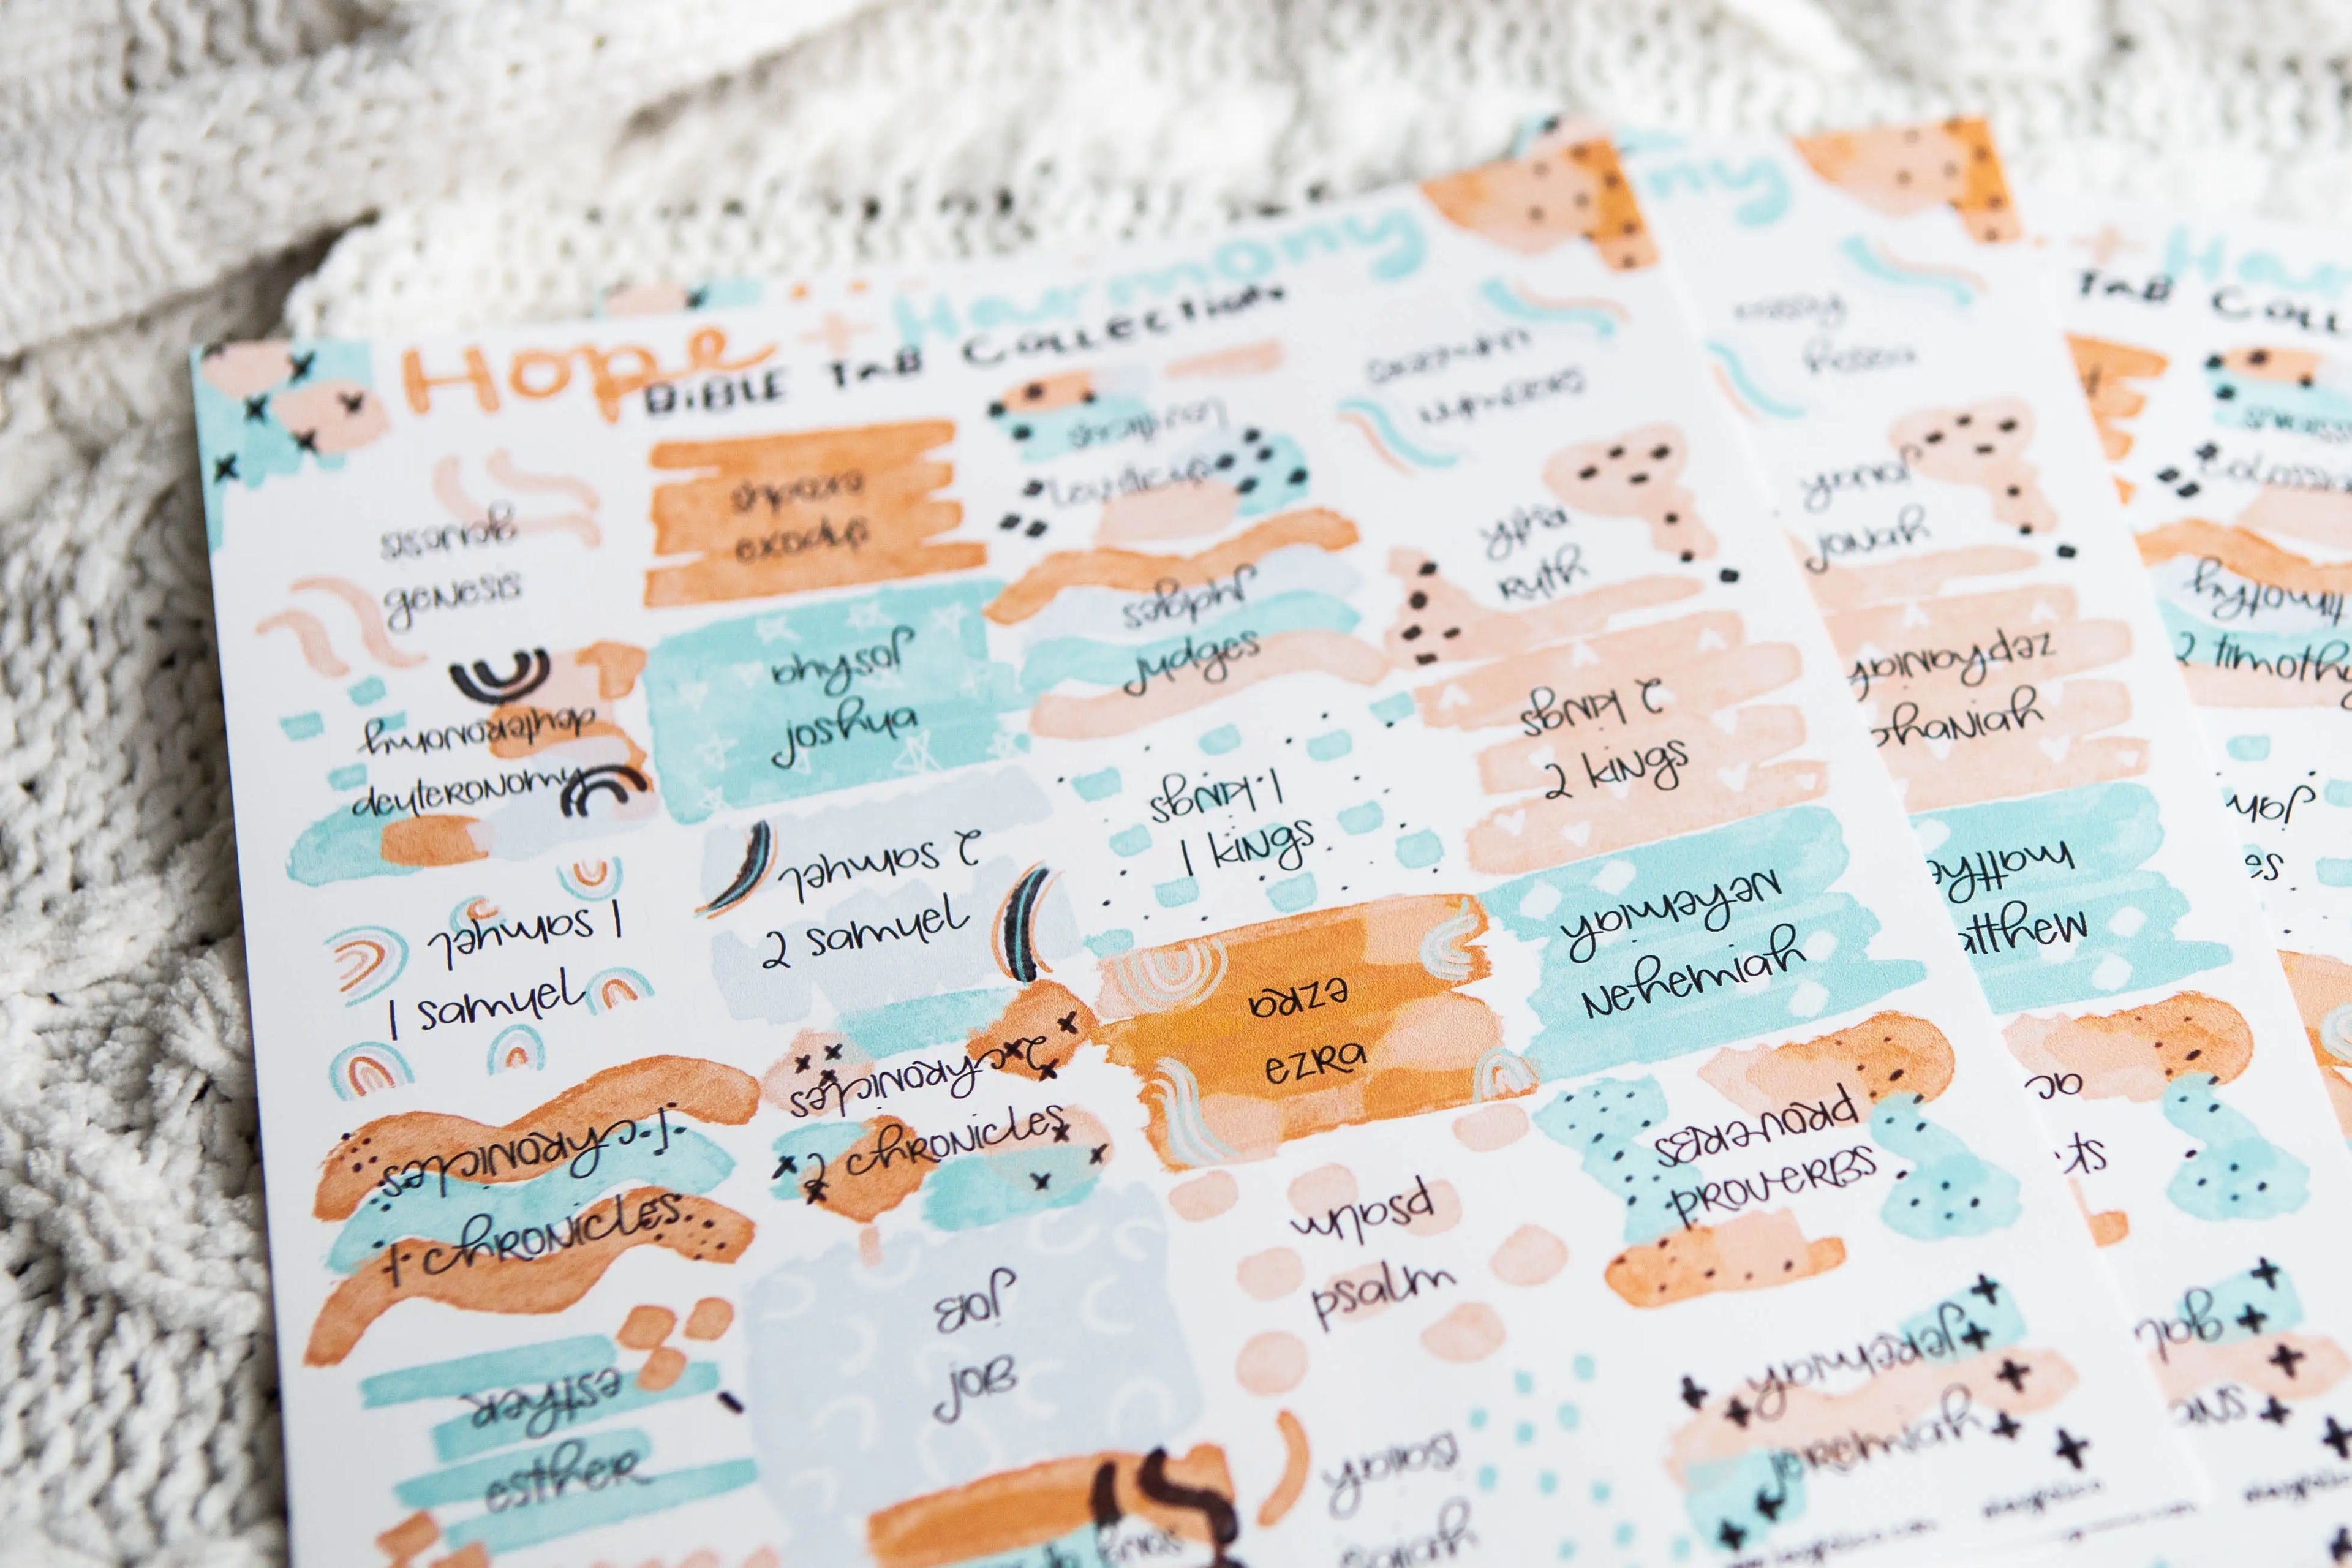 Hope + Harmony
BIBLE TAB COLLECTION
genesis
genesis
exodus
exodus
leviticus
leviticus
numbers
numbers
deuteronomy
deuteronomy
joshua
joshua
judges
judges
ruth
ruth
1 samuel
1 samuel
2 samuel
2 samuel
1 kings
1 kings
2 kings
2 kings
1 chronicles
1 chronicles
2 chronicles
2 chronicles
ezra
ezra
nehemiah
nehemiah
esther
esther
job
job
psalm
psalm
proverbs
proverbs
isaiah
jeremiah
jeremiah
hosea
jonah
jonah
zephaniah
2 timothy
Harmony
TAB